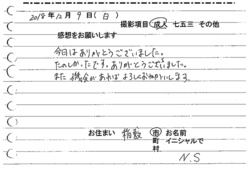 2018年12月9日(日)
撮影項目 成人 七五三 その他
感想をお願いします
今日はありがとうございました。
たのしかったです。ありがとうございました。
また機会があればよろしくお願いします。
お住まい 指宿 市 お名前
町 イニシャルで
村
N.S